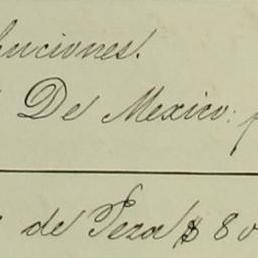 uciones.
De Mexico:
de Peza $ 80